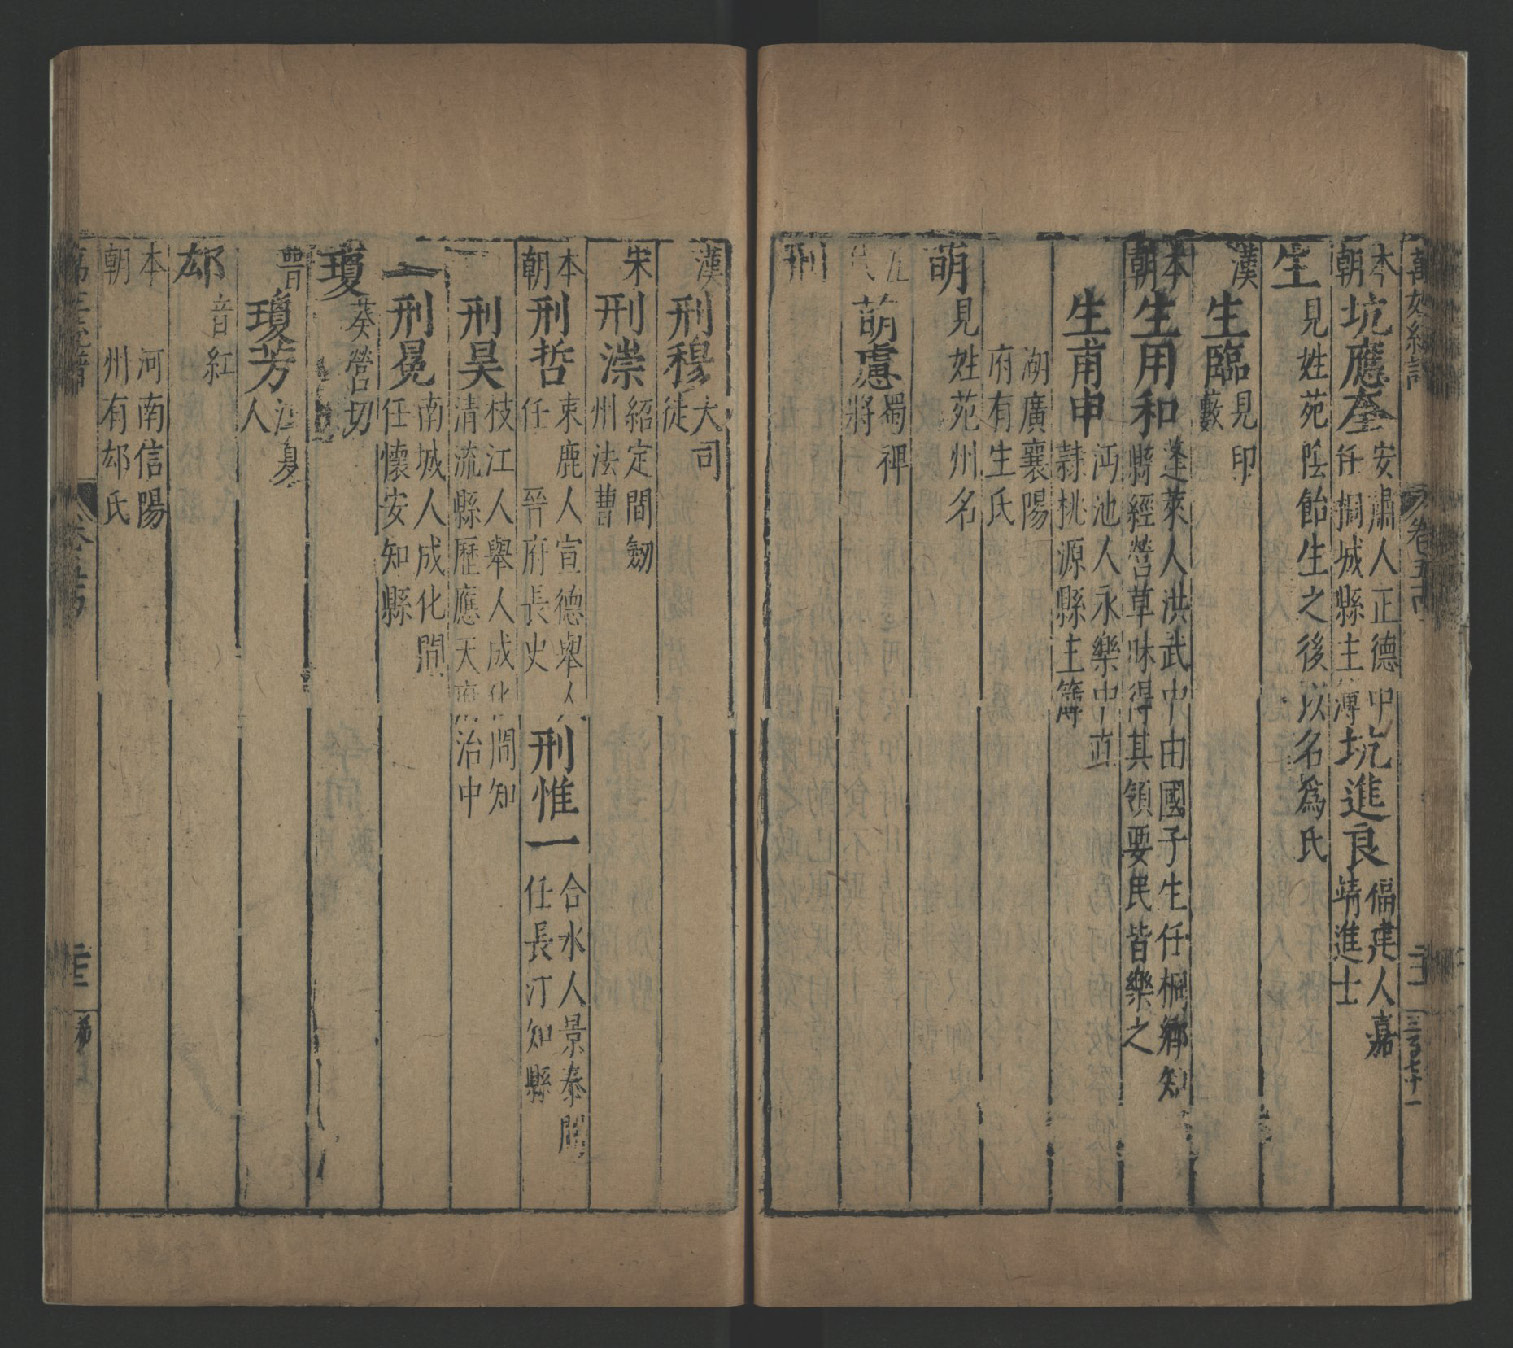 卷五十
本朝
坑應奎
安肅人正德中
任桐城縣主簿
坑進良
福建人嘉
靖進士
生
見姓苑陰飴生之後以名為氏
漢
生臨
見印
藪
本朝
生用和
蓬萊人洪武中由國子生任桐鄉知
縣經營草昧得其領要民皆樂之
生甫申
沔池人永樂中直
隸桃源縣主簿
湖廣襄陽
府有生氏
萌
見姓苑州名
五代
萌慮
蜀裨
將
刑
漢
刑穆
大司
徒
宋
刑潀
紹定間劒
州法曹
本朝
刑哲
束鹿人宣德舉人
任 晉府長史
刑惟一
合水人景泰間
任長汀知縣
刑昊
枝江人舉人成化間知
清流縣歷應天府治中
刑冕
南城人成化間
任懷安知縣
瓊
葵營切
晉
瓊芳
江夏
人
邥
音紅
本朝
河南信陽
州有邥氏